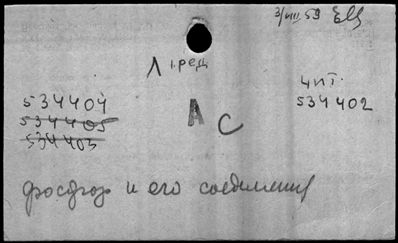 3/VIII 59 ЕЩ
1 ред
Л
чит.
534404
534402
534405
534403
А С
фосфор и его соединения